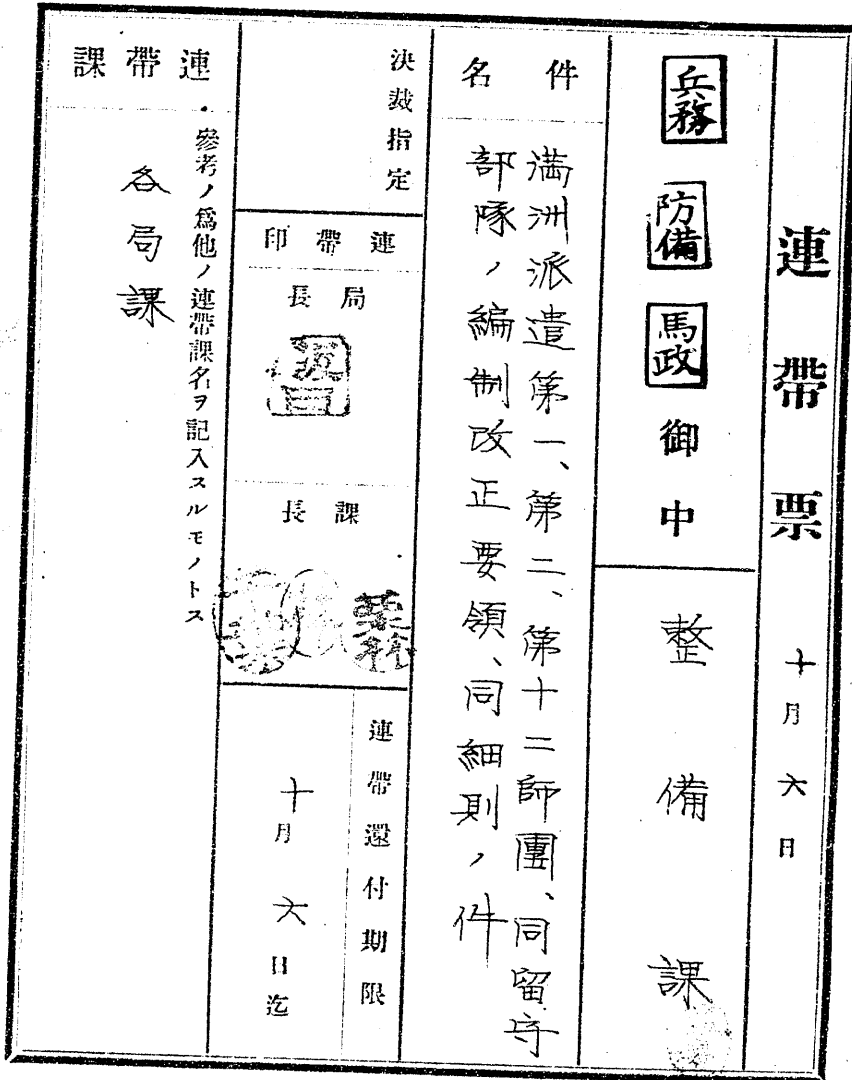 連帶票 十月六日
兵務 防備 馬政 御中
整備課
件名
満洲派遣第一、第二、第十二師團、同留守
部隊ノ編制改正要領、同細則ノ件
決裁指定
連帶印
局長
課長
連帶還付期限
十月六日迄
連帶課
參考ノ爲他ノ連帶課名ヲ記入スルモノトス
各局課